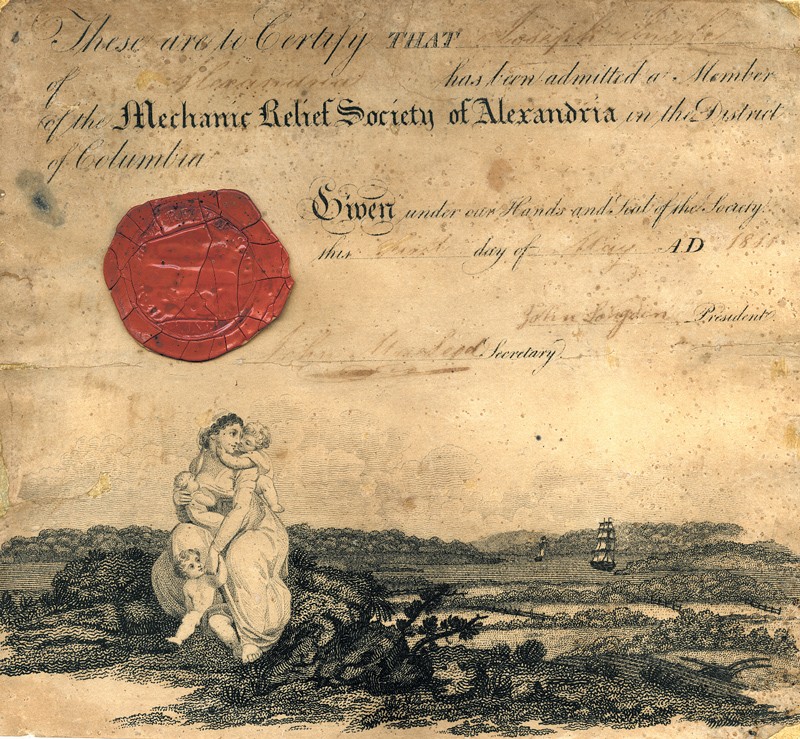 These are to Certify THAT Joseph
of Alexandria has been admitted a Member
of the Mechanic Relief Society of Alexandria in the District
of Columbia
Given under our Hands and Seal of the Society
this third day of May AD
John Longden President
Secretary